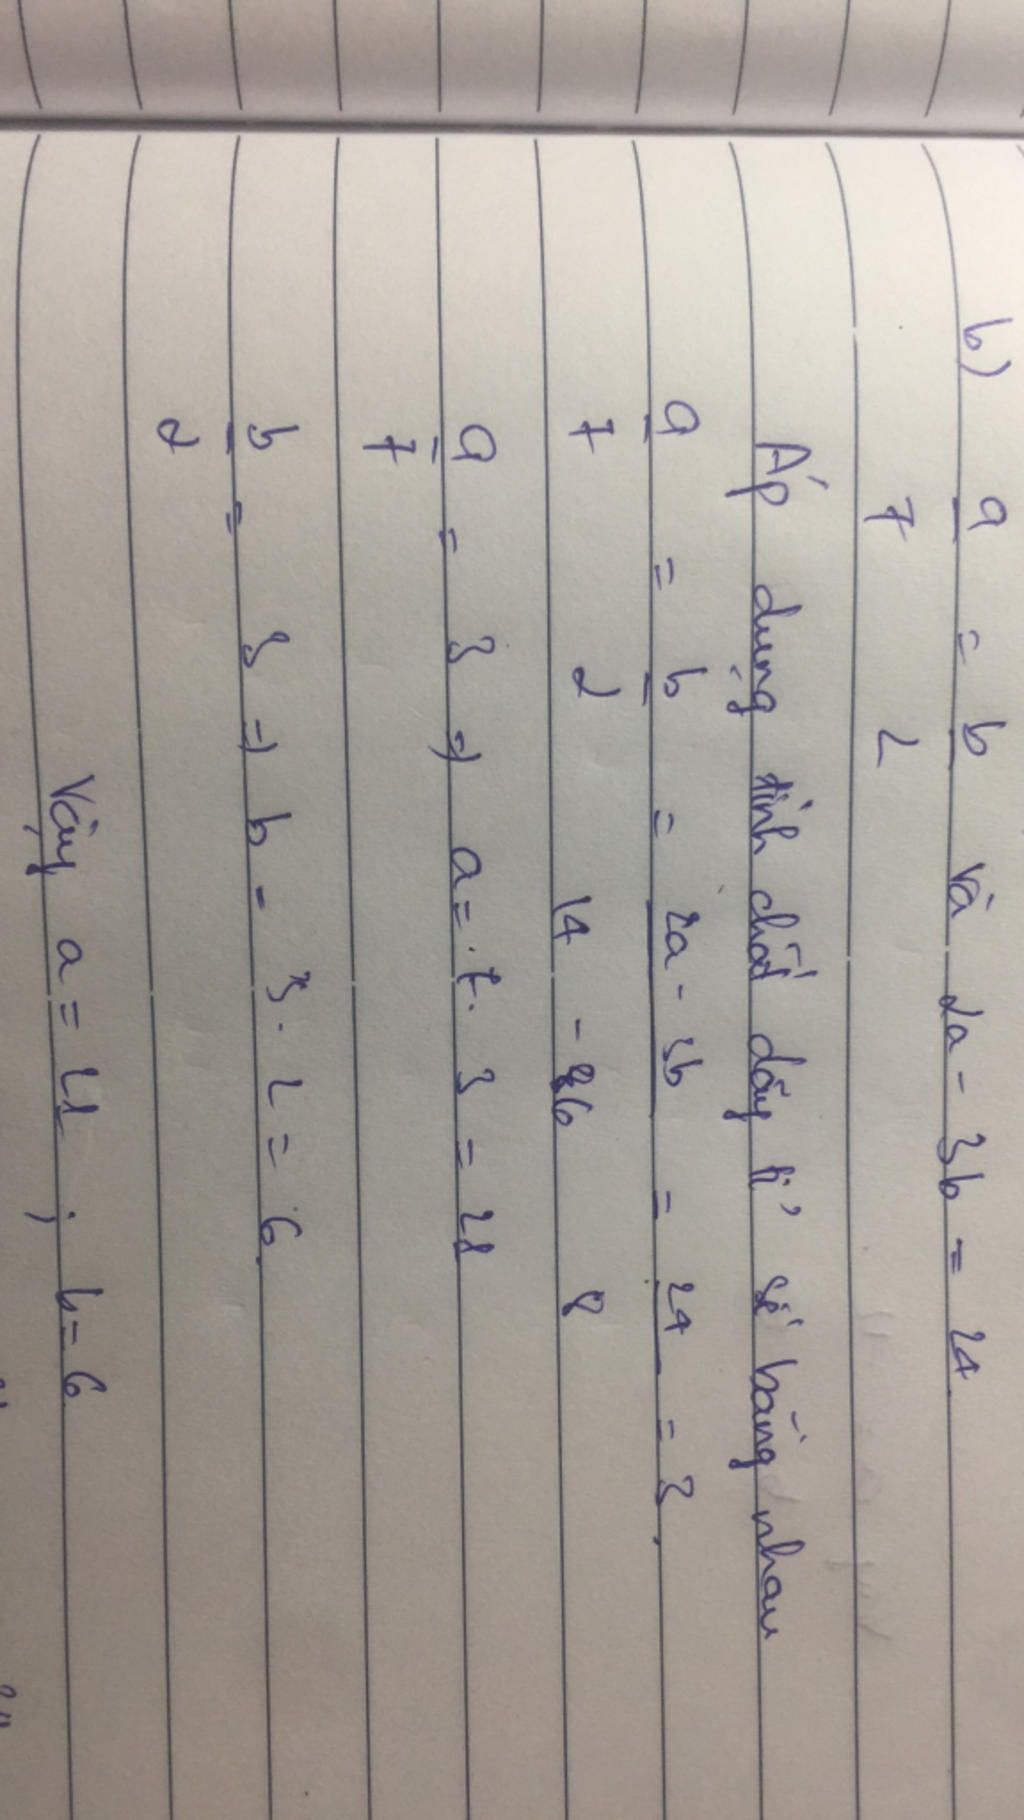 b) a/7 = b/2 và 2a - 3b = 24
Áp dụng tính chất dãy tỉ số bằng nhau
a/7 = b/2 = 2a - 3b/14 - 6 = 24/8 = 3.
a/7 = 3 => a = 7. 3 = 21
b/2 = 3 => b = 3. 2 = 6.
Vậy a = 21 ; b = 6